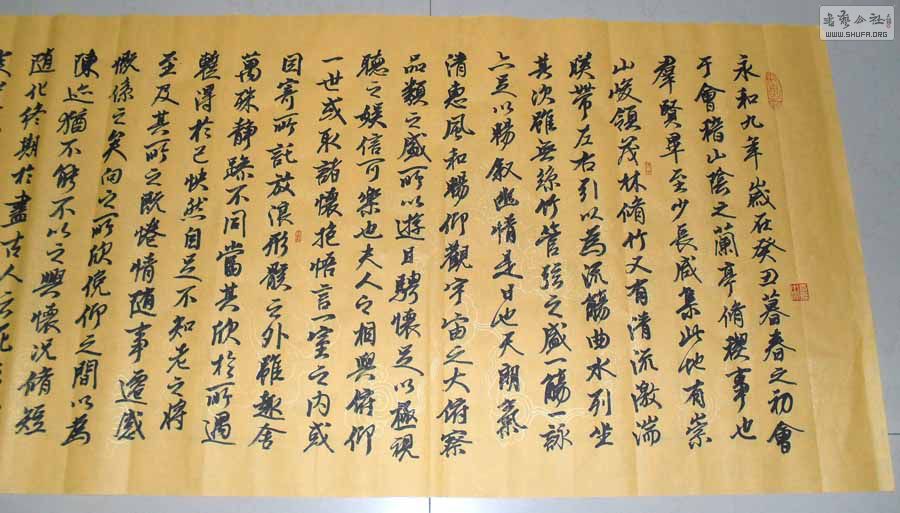 永和九年歲在癸丑暮春之初會
于會稽山陰之蘭亭脩禊事也
羣賢畢至少長咸集此地有崇
山峻領茂林脩竹又有清流激湍
暎帶左右引以為流觴曲水列坐
其次雖無絲竹管弦之盛一觴一詠
亦足以暢敘幽情是日也天朗氣
清惠風和暢仰觀宇宙之大俯察
品類之盛所以遊目騁懷足以極視
聽之娛信可樂也夫人之相與俯仰
一世或取諸懷抱悟言一室之內或
因寄所託放浪形骸之外雖趣舍
萬殊靜躁不同當其欣於所遇
蹔得於己快然自足不知老之將
至及其所之既惓情隨事遷感
慨係之矣向之所欣俛仰之間以為
陳迹猶不能不以之興懷況脩短
隨化終期於盡古人云死
書藝公社
WWW.SHUFA.ORG